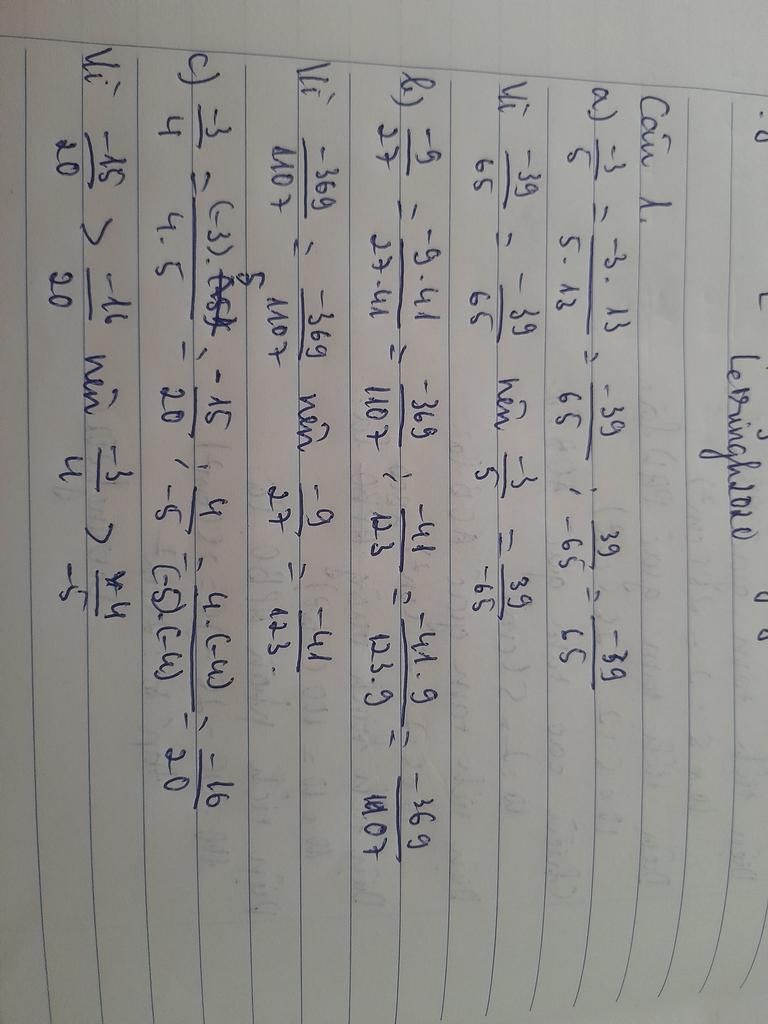 Levningh2020
Câu 1.
a) -3/5 = -3.13/5.13 = -39/65 , 39/-65 = -39/65
Vì -39/65 = -39/65 nên -3/5 = 39/-65
b) -9/27 = -9.41/27.41 = -369/1107 , -41/123 = -41.9/123.9 = -369/1107
Vì -369/1107 = -369/1107 nên -9/27 = -41/123.
c) -3/4 = (-3).5/4.5 = -15/20 , 4/-5 = 4.(-4)/(-5).(-4) = -16/20
Vì -15/20 > -16/20 nên -3/4 > 4/-5